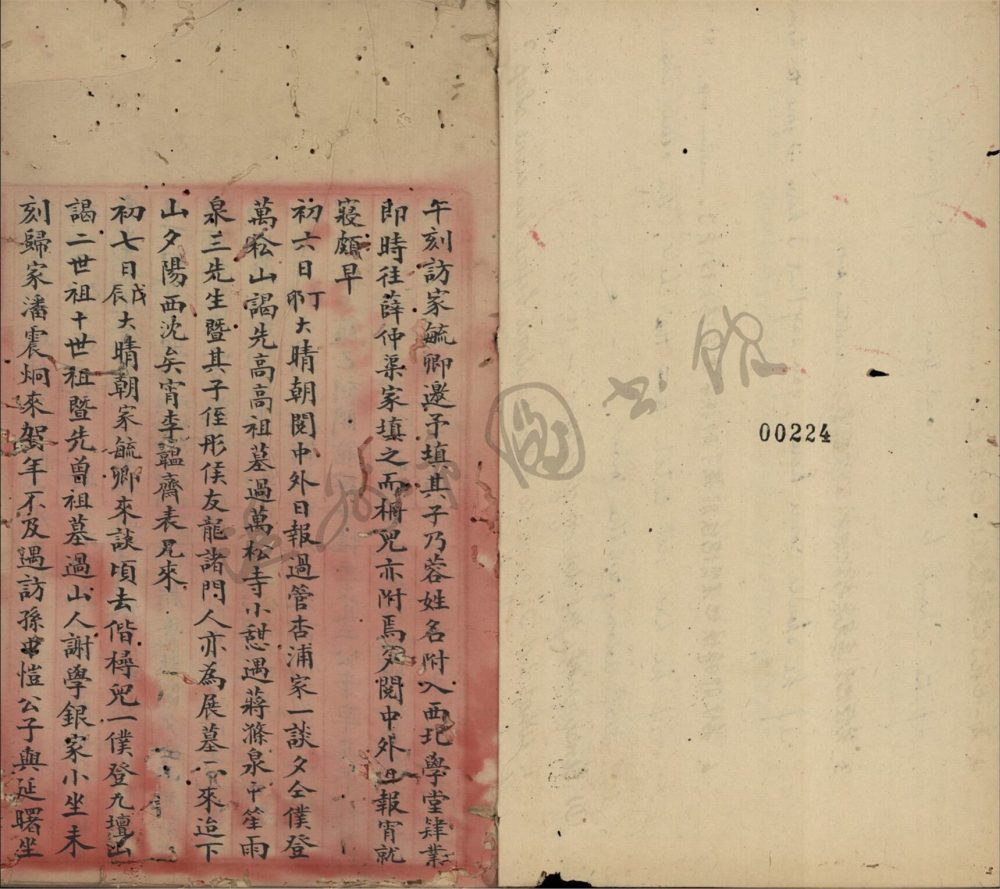 午刻訪家毓卿邀予填其子乃蓉姓名附入西北學堂肄業
即時往薛仲渠家填之而樹兒亦附焉夕閱中外日報宵就
寢頗早
初六日丁卯大晴朝閱中外日報過管杏浦家一談夕仝僕登
萬松山謁先高高祖墓過萬松寺小憩遇蔣滌泉平笙雨
泉三先生暨其子侄彤侯友龍諸門人亦為展墓而來迨下
山夕陽西沈矣宵李韞齋表兄來
初七日戊辰大晴朝家毓卿來談頃去偕樳兒一僕登九壇山
謁二世祖十世祖暨先曾祖墓過山人謝學銀家小坐未
刻歸家潘震炯來賀年不及遇訪孫愷公子與延曙坐
圖書館
00224